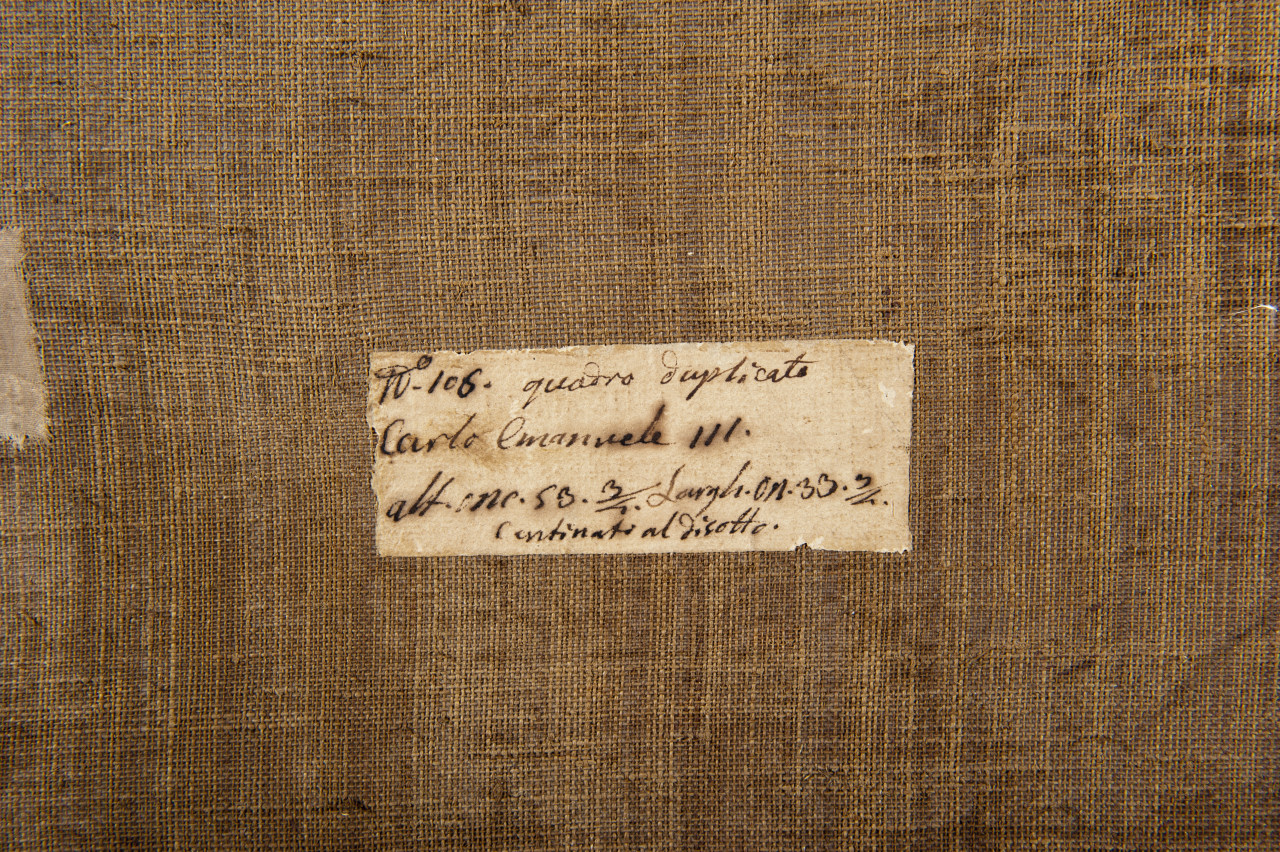 N.º 106. quadro duplicato
Carlo Emanuele III.
alt. onc. 53. 3/4. Largh. on. 33. 3/4.
Centinato al disotto.